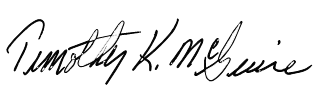 Timothy K. McGuire